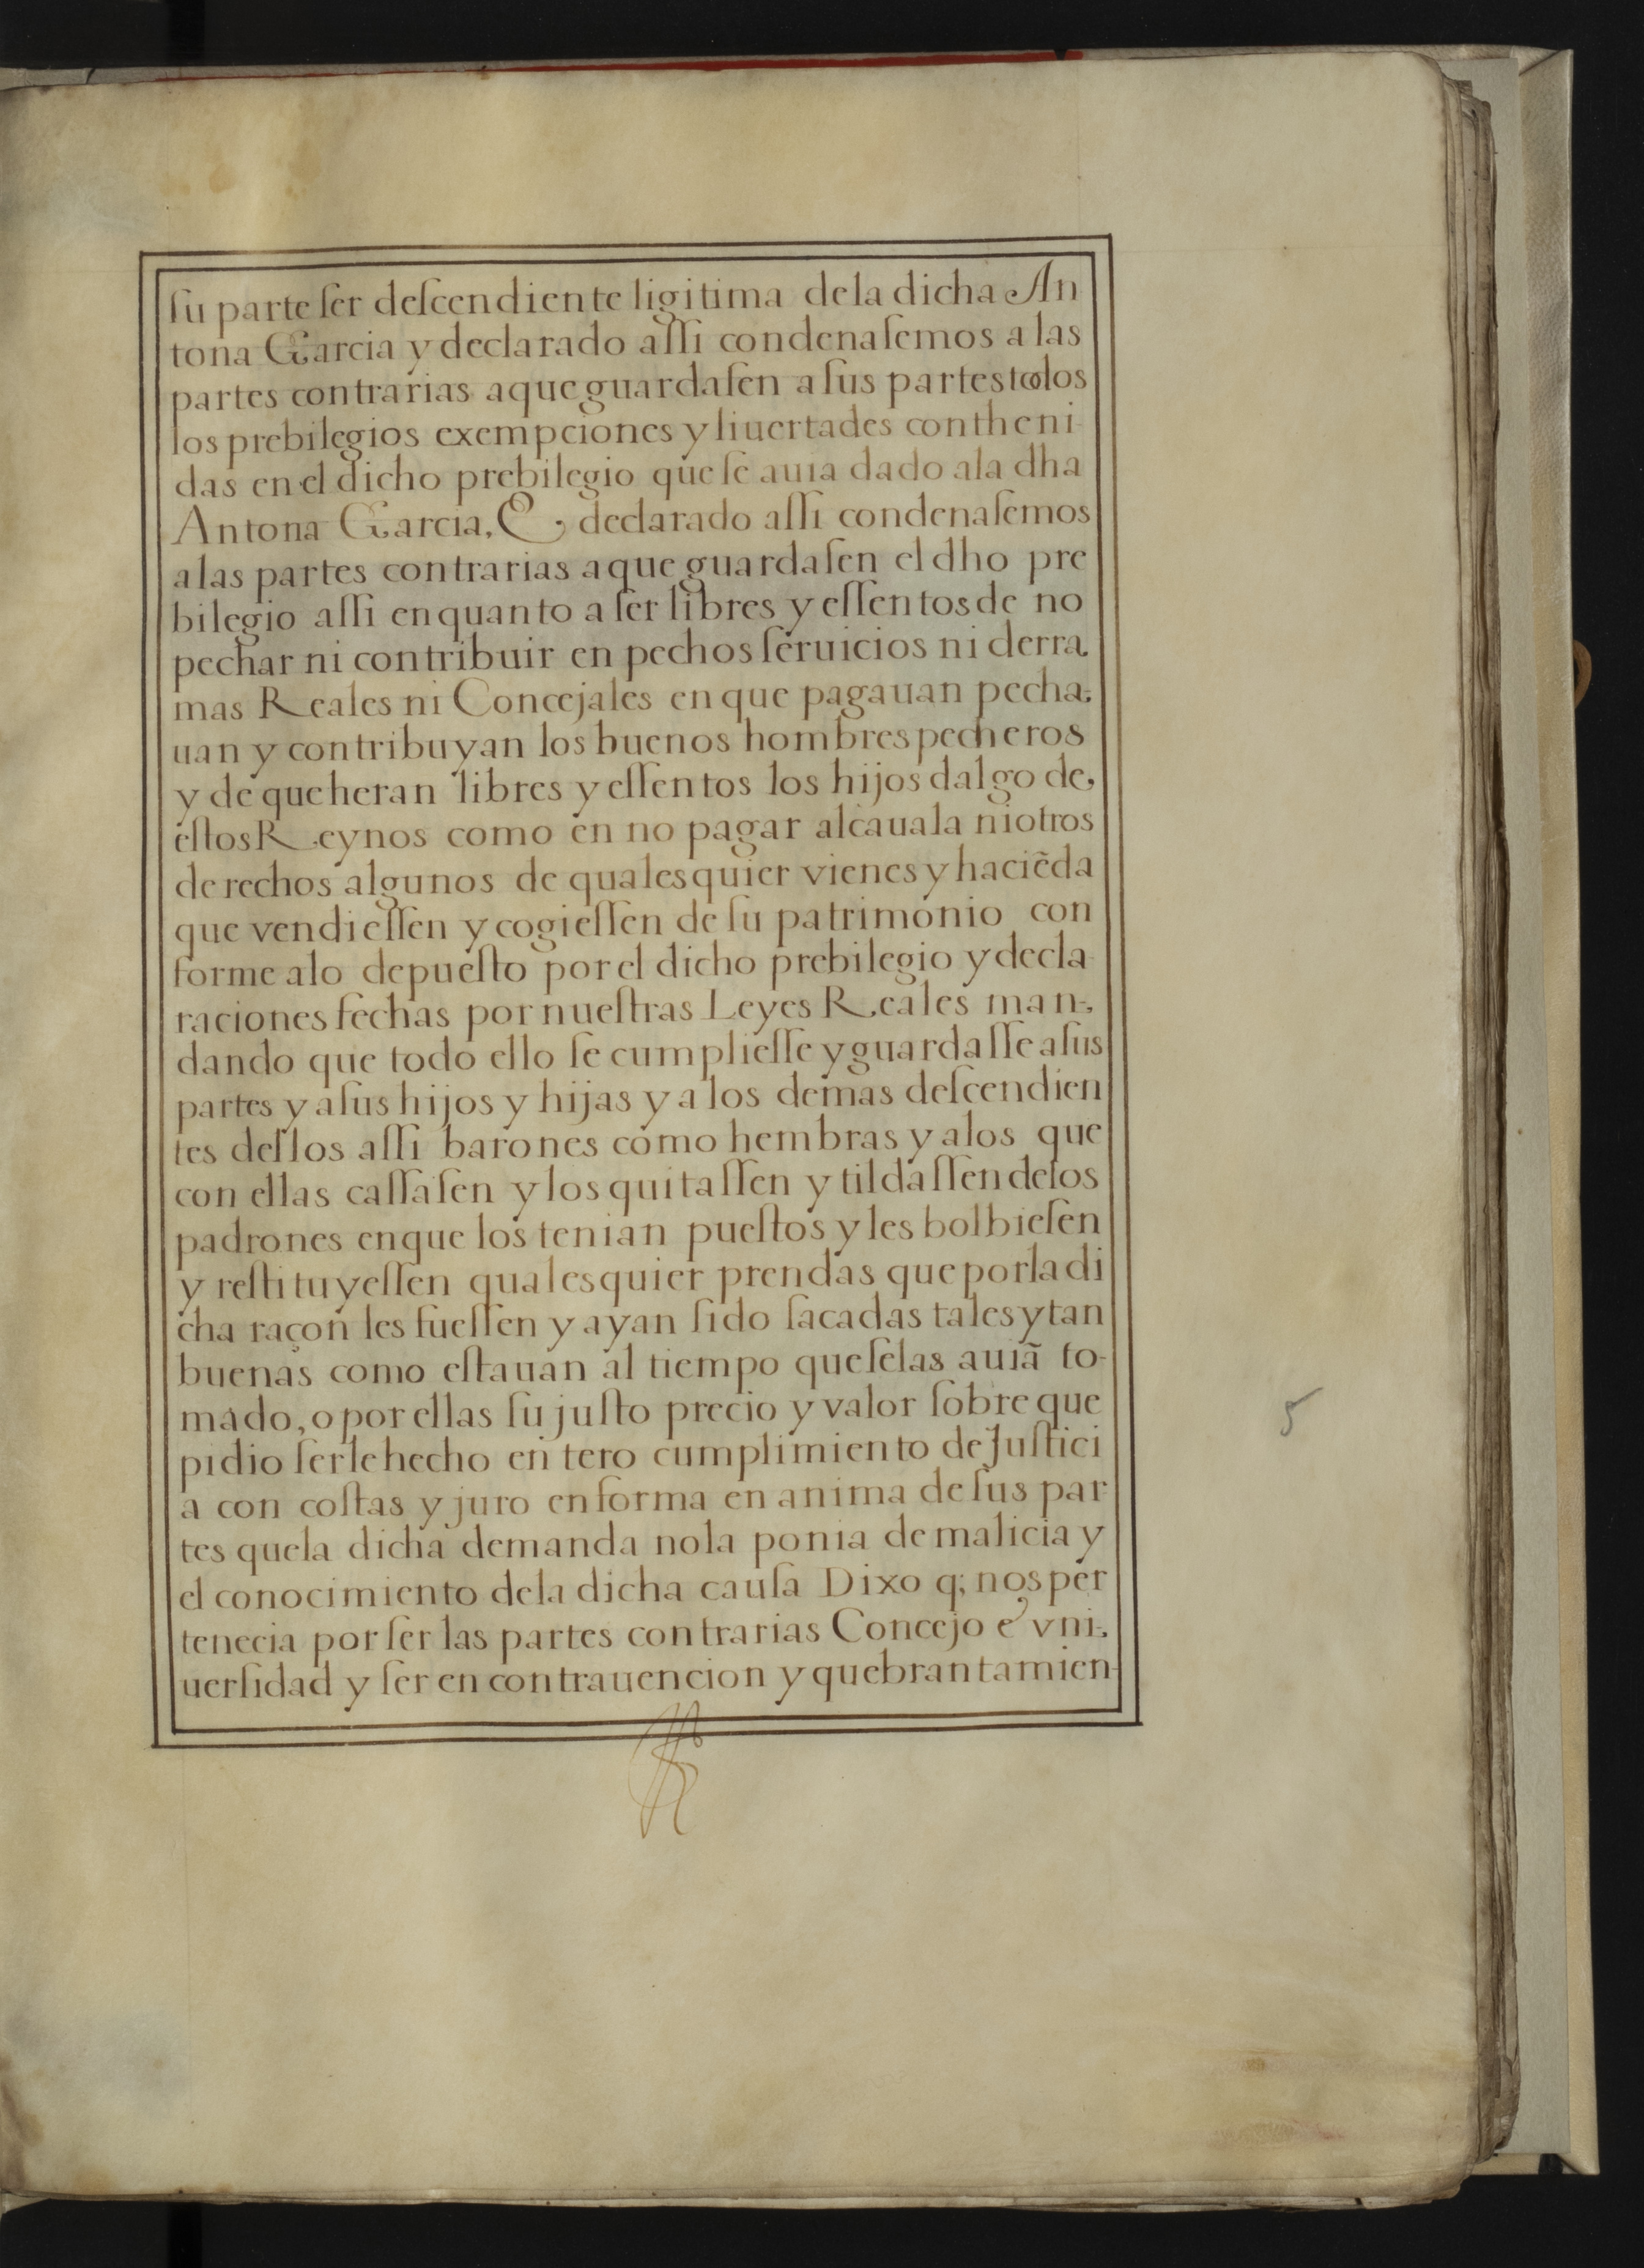 ſu parte ſer deſcendiente ligitima dela dicha An
tona Garcia y declarado aſſi condenaſemos a las
partes contrarias aque guardaſen a ſus partes todos
los prebilegios exempciones y liuertades contheni-
das en el dicho prebilegio que ſe auia dado ala dha
Antona Garcia, E, declarado aſſi condenaſemos
a las partes contrarias a que guardaſen el dho pre
bilegio aſſi en quanto a ſer libres y eſſentos de no
pechar ni contribuir en pechos ſeruicios ni derra.
mas Reales ni Concejales en que pagauan pecha-
uan y contribuyan los buenos hombres pecheros
y de que heran libres y eſſentos los hijos dalgo de,
eſtos Reynos como en no pagar alcauala ni otros
derechos algunos de qualesquier vienes y haciẽda
que vendieſſen y cogieſſen de ſu patrimonio con
forme alo depueſto por el dicho prebilegio y decla-
raciones fechas por nueſtras Leyes Reales man-,
dando que todo ello ſe cumplieſſe y guardaſſe aſus
partes y aſus hijos y hijas y a los demas deſcendien
tes dellos aſſi barones como hembras y alos que
con ellas caſſaſen y los quitaſſen y tildaſſen delos
padrones en que los tenian pueſtos y les bolbieſen
y reſtituyeſſen qualesquier prendas que por la di
cha raçon les fueſſen y ayan ſido ſacadas tales y tan
buenas como eſtauan al tiempo que ſelas auiã to-
mado, o por ellas ſu juſto precio y valor ſobre que
pidio ſerle hecho entero cumplimiento de Juſtici
a con coſtas y juro en forma en anima de ſus par
tes que la dicha demanda no la ponia de malicia y
el conocimiento dela dicha cauſa Dixo q; nos per
tenecia por ſer las partes contrarias Concejo e vni-,
uerſidad y ſer en contrauencion y quebrantamien-
5